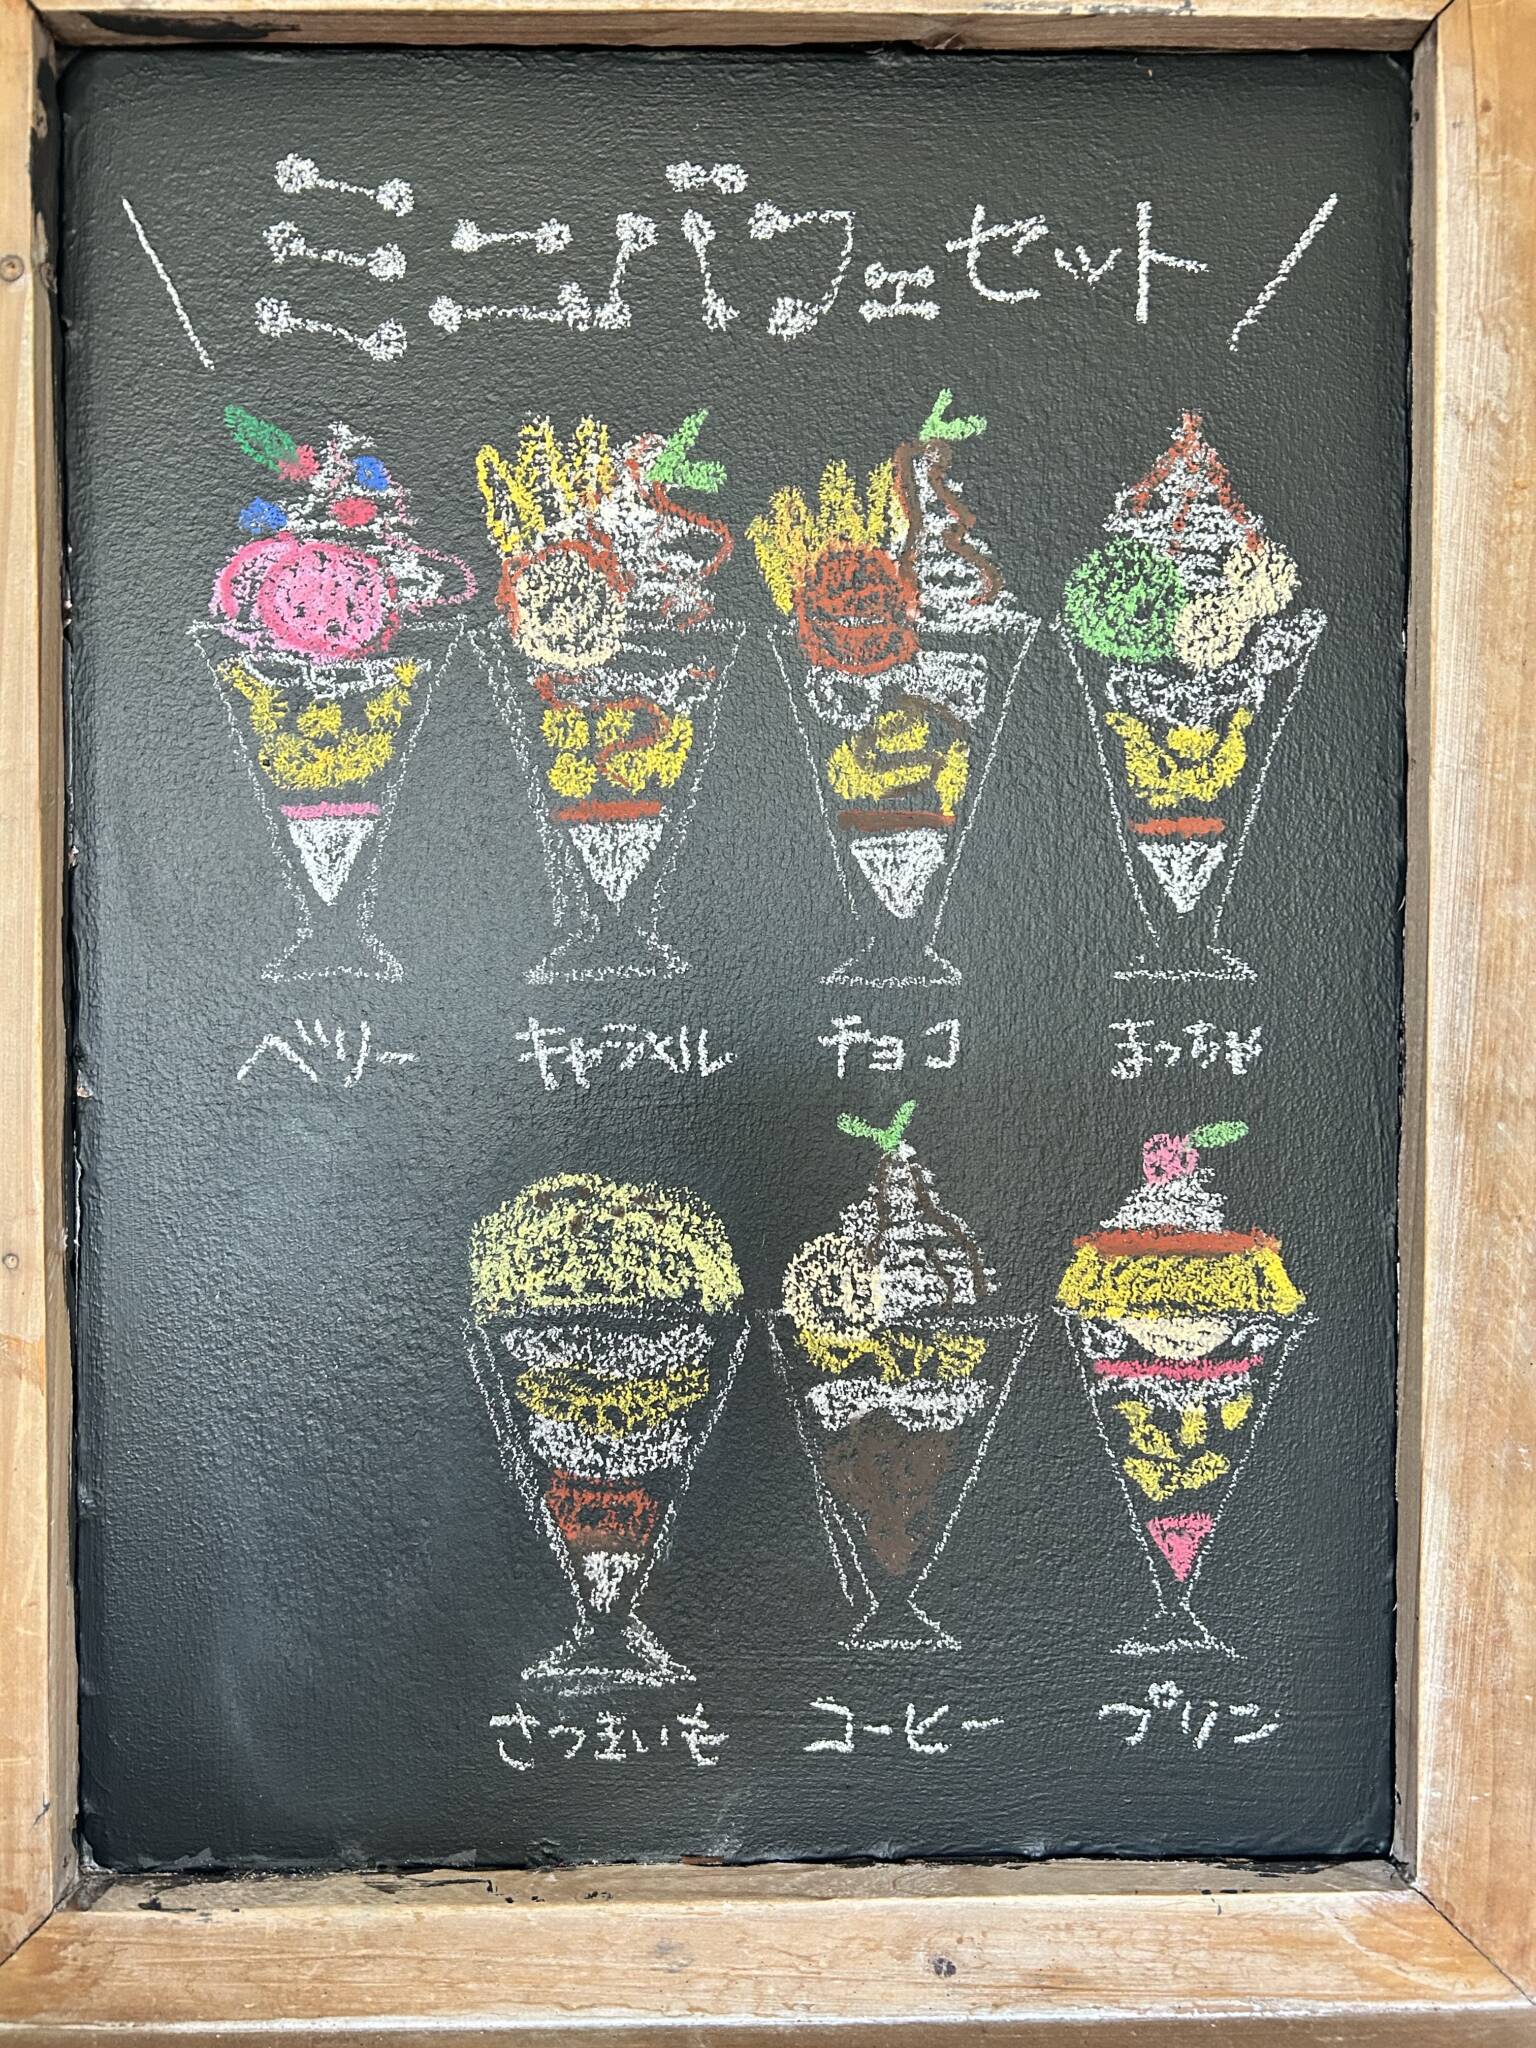 \ ミニパフェセット /
ベリー キャラメル チョコ まっちゃ
さつまいも コーヒー プリン